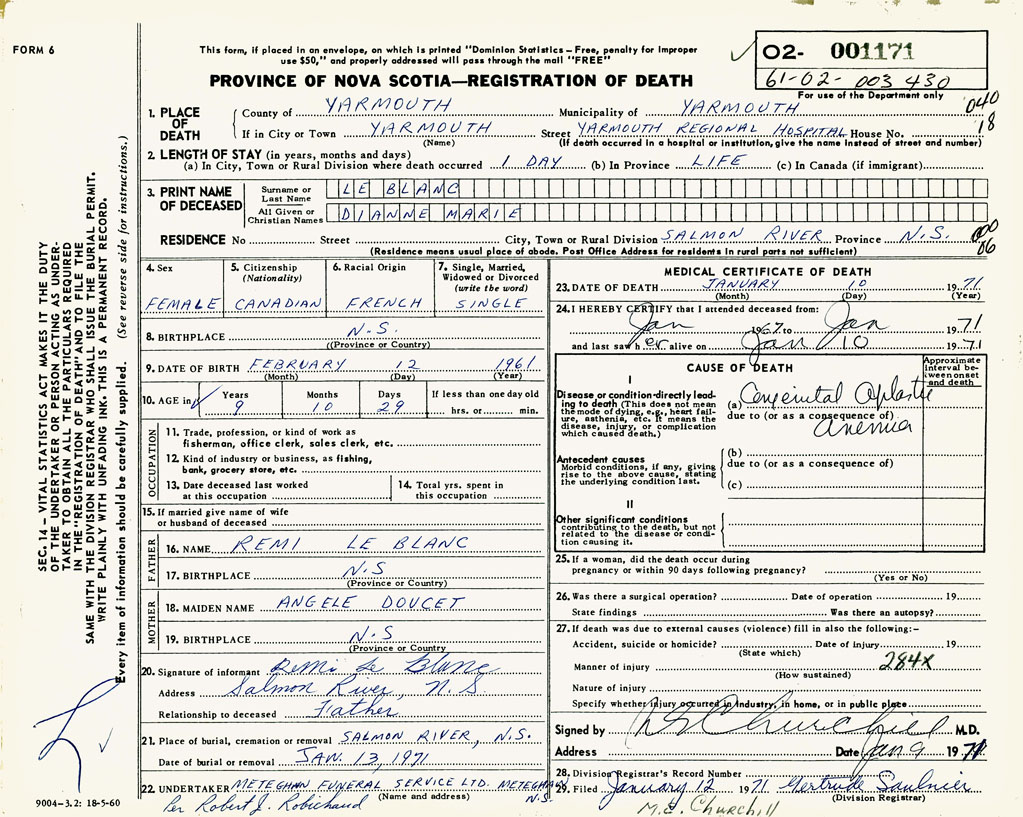 FORM 6
This form, if placed in an envelope, on which is printed "Dominion Statistics – Free, penalty for improper
use $50," and properly addressed will pass through the mail "FREE"
PROVINCE OF NOVA SCOTIA—REGISTRATION OF DEATH
O2- 001171
61-02-003430
For use of the Department only
040
18
1. PLACE OF DEATH
County of YARMOUTH Municipality of YARMOUTH
If in City or Town YARMOUTH Street YARMOUTH REGIONAL HOSPITAL House No.
(Name) (If death occurred in a hospital or institution, give the name instead of street and number)
2. LENGTH OF STAY (in years, months and days)
(a) In City, Town or Rural Division where death occurred 1 DAY (b) In Province LIFE (c) In Canada (if immigrant)
3. PRINT NAME OF DECEASED
Surname or Last Name LE BLANC
All Given or Christian Names DIANNE MARIE
RESIDENCE No. Street City, Town or Rural Division SALMON RIVER Province N.S.
000
06
(Residence means usual place of abode. Post Office Address for residents in rural parts not sufficient)
4. Sex FEMALE
5. Citizenship (Nationality) CANADIAN
6. Racial Origin FRENCH
7. Single, Married, Widowed or Divorced (write the word) SINGLE
8. BIRTHPLACE N.S.
(Province or Country)
9. DATE OF BIRTH FEBRUARY 12 1961
(Month) (Day) (Year)
10. AGE in Years Months Days If less than one day old
9 10 29 hrs. or min.
OCCUPATION
11. Trade, profession, or kind of work as
fisherman, office clerk, sales clerk, etc.
12. Kind of industry or business, as fishing,
bank, grocery store, etc.
13. Date deceased last worked
at this occupation
14. Total yrs. spent in
this occupation
15. If married give name of wife
or husband of deceased
FATHER
16. NAME REMI LE BLANC
17. BIRTHPLACE N.S
(Province or Country)
MOTHER
18. MAIDEN NAME ANGELE DOUCET
19. BIRTHPLACE N.S
(Province or Country
20. Signature of informant Remi Le Blanc
Address Salmon River, N.S.
Relationship to deceased Father
21. Place of burial, cremation or removal SALMON RIVER, N.S.
Date of burial or removal JAN. 13, 1971
22. UNDERTAKER METEGHAN FUNERAL SERVICE LTD. METEGHAN
N.S.
(Name and address)
Per Robert J. Robichaud
9004-3.2: 18-5-60
MEDICAL CERTIFICATE OF DEATH
23. DATE OF DEATH JANUARY 10 1971
(Month) (Day) (Year)
24. I HEREBY CERTIFY that I attended deceased from:
Jan 1967 to Jan 1971
and last saw her alive on Jan 10 1971
CAUSE OF DEATH
Approximate interval between onset and death
I
Disease or condition directly leading to death (This does not mean the mode of dying, e.g., heart failure, asthenia, etc. It means the disease, injury, or complication which caused death.)
(a) Congenital Aplastic
due to (or as a consequence of)
Anemia
Antecedent causes
Morbid conditions, if any, giving rise to the above cause, stating the underlying condition last.
(b)
due to (or as a consequence of)
(c)
II
Other significant conditions
contributing to the death, but not related to the disease or condition causing it.
25. If a woman, did the death occur during
pregnancy or within 90 days following pregnancy?
(Yes or No)
26. Was there a surgical operation? Date of operation 19
State findings Was there an autopsy?
27. If death was due to external causes (violence) fill in also the following:–
Accident, suicide or homicide? Date of injury 19
(State which)
Manner of injury 284X
(How sustained)
Nature of injury
Specify whether injury occurred in industry, in home, or in public place
Signed by Churchill M.D.
Address Date Jan 9 1971
28. Division Registrar's Record Number
29. Filed January 12 1971 Gertrude Saulnier
(Division Registrar)
M.E. CHURCHILL
SEC. 14 – VITAL STATISTICS ACT MAKES IT THE DUTY
OF THE UNDERTAKER OR PERSON ACTING AS UNDER-
TAKER TO OBTAIN ALL THE PARTICULARS REQUIRED
IN THE "REGISTRATION OF DEATH" AND TO FILE THE
SAME WITH THE DIVISION REGISTRAR WHO SHALL ISSUE THE BURIAL PERMIT.
WRITE PLAINLY WITH UNFADING INK. THIS IS A PERMANENT RECORD.
Every item of information should be carefully supplied. (See reverse side for instructions.)